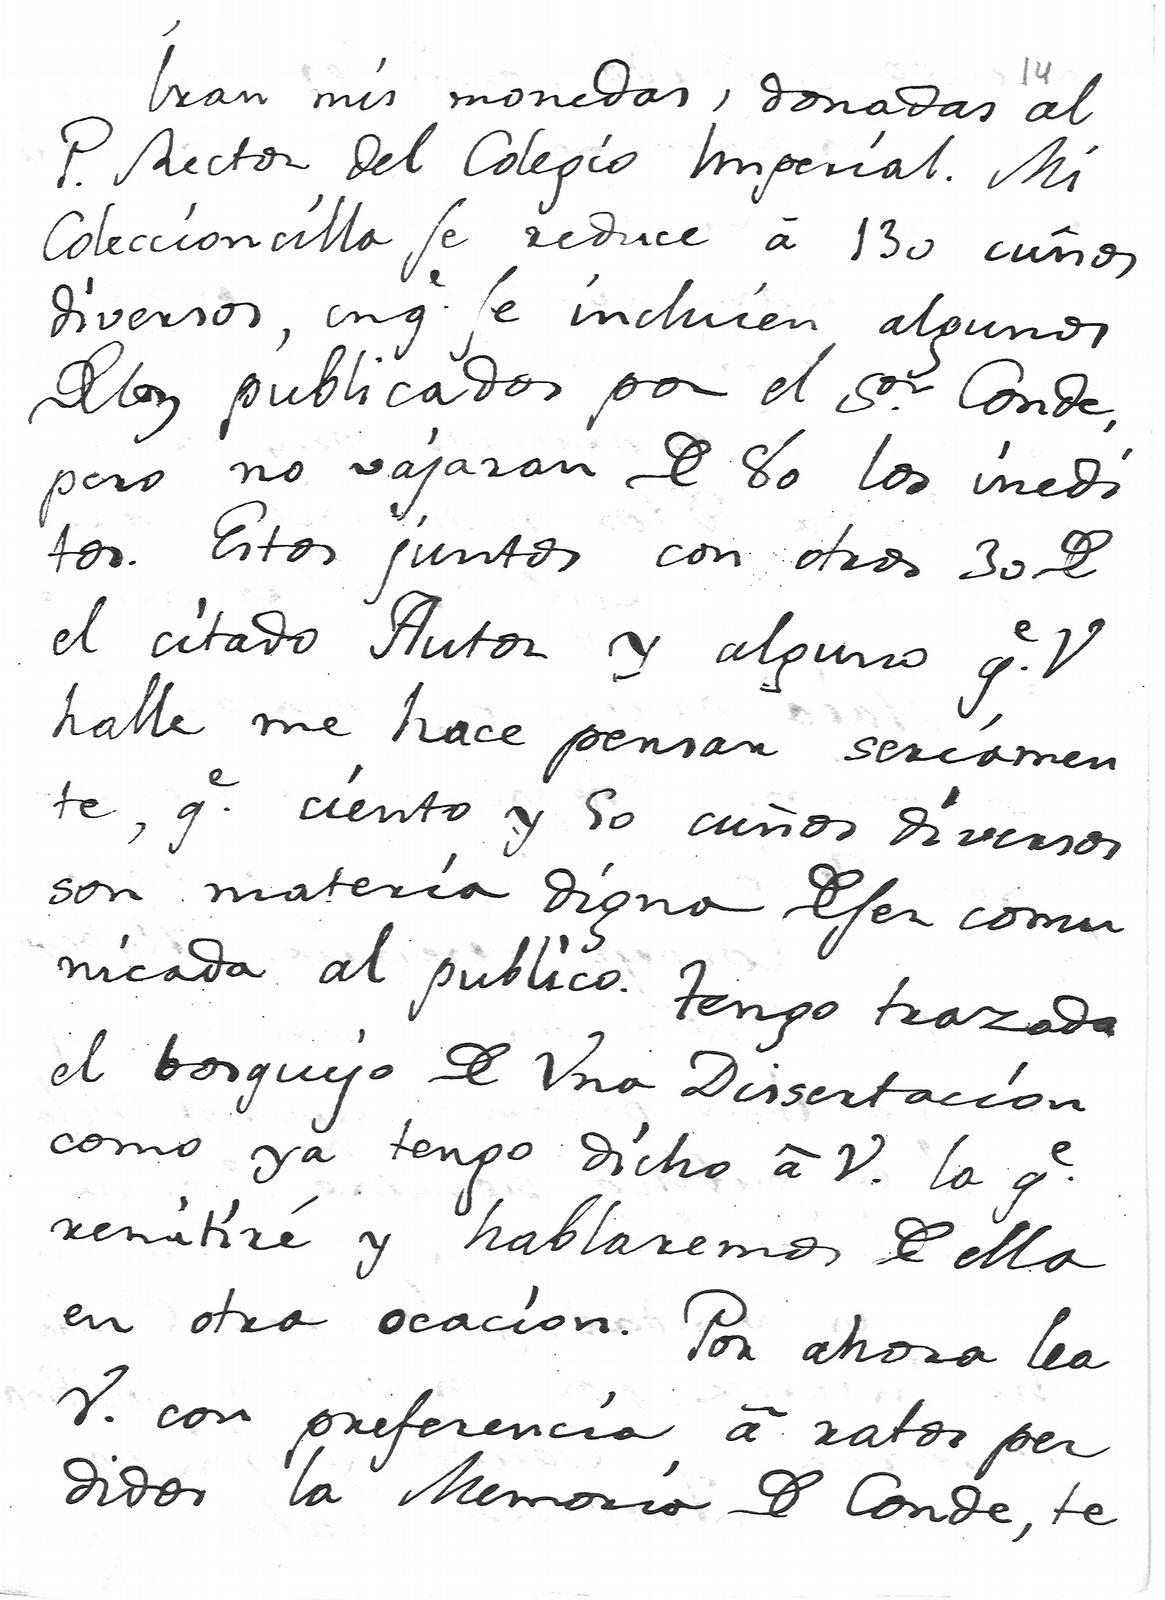 14
Iran mis monedas, donadas al
P. Rector del Colegio Imperial. Mi
Coleccioncilla se reduce â 130 cuños
diversos, en q.e se incluien algunos
Delos publicados por el S.or Conde,
pero no vajaran De 80 los inedi
tos. Estos juntos con otros 30 De
el citado Autor y alguno q.e V
halle me hace pensar seriamen
te, q.e ciento y 50 cuños diversos
son materia digna De ser comu
nicada al publico. Tengo trazada
el bosquejo De Vna Dissertacion
como ya tengo dicho â V. la q.e
remitiré y hablaremos De ella
en otra ocacion. Por ahora lea
V. con preferencia â ratos per
didos la Memoria De Conde, te